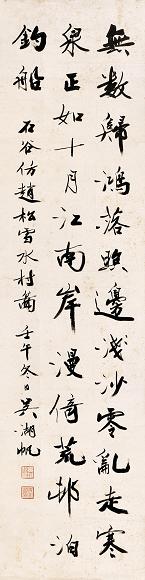 無數歸鴻落照邊淺沙零亂走寒
泉正如十月江南岸漫倚荒邨泊
釣船 石谷仿趙松雪水村圖 壬午冬日吳湖帆